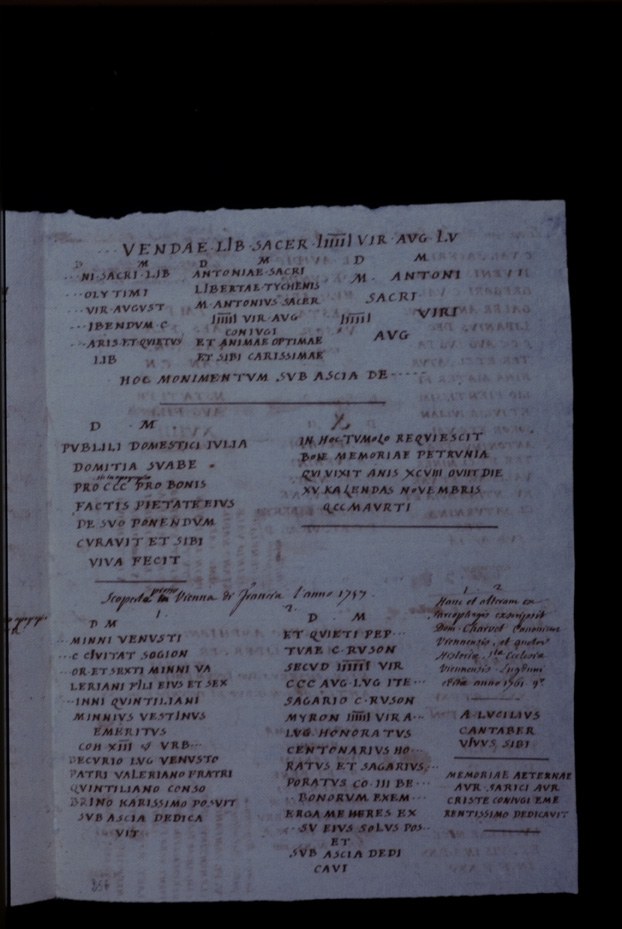 VENDAE·LIB·SACER·IIIIII VIR·AVG·LV
D M
···NI·SACRI·LIB
···OLYTIMI
···VIR·AVGVST
···IBENDVM·C
···ARIS·ET·QVIETVS
LIB
D M
ANTONIAE·SACRI
LIBERTAE·TYCHENIS
M·ANTONIVS·SACER
IIIIII VIR·AVG
CONIVGI
ET ANIMAE OPTIMAE
ET SIBI CARISSIMAE
D M
M· ANTONI
SACRI
IIIIII VIRI
AVG
HOC MONIMENTVM SVB ASCIA DE-----
D · M·
PVBLILI DOMESTICI IVLIA
DOMITIA SVABE
PRO CCC PRO BONIS
FACTIS PIETATE EIVS
DE SVO PONENDVM
CVRAVIT ET SIBI
VIVA FECIT
IN HOC TVMOLO REQVIESCIT
BONE MEMORIAE PETRVNIA
QVI VIXIT ANIS XCVIII OVIIT DIE
XV KALENDAS NOVEMBRIS
QCC MAVRTI
Scoperta in Vienna di Francia l'anno
1.
D M
MINNI VENVSTI
··C CIVITAT SOGION
··OR·ET SEXTI MINNI VA
LERIANI FILI EIVS ET SEX
··INNI QVINTILIANI
MINNIVS VESTINVS
EMERITVS
COH XIII VRB···
DECVRIO LVG VENVSTO
PATRI VALERIANO FRATRI
QVINTILIANO CONSO
BRINO KARISSIMO POSVIT
SVB ASCIA DEDICA
VIT
2.
D · M
ET QVIETI PEP···
TVAE C·RVSON
SECVD IIIIII VIR
CCC AVG·LVG ITE···
SAGARIO C·RVSON
MYRON IIIIII VIR A···
LVG HONORATVS
CENTONARIVS HO···
RATVS ET SAGARIVS···
PORATVS CO III BE···
BONORVM EXEM···
ERGA ME HERES EX
··SV EIVS SOLVS POS··
ET
SVB ASCIA DEDI
CAVI
1 2
Hanc et alteram ex
Dom. Charvet
Viennensis
anno 1761
A·LVCILIVS
CANTABER
VIVVS SIBI
MEMORIAE AETERNAE
AVR SARICI AVR
CRISTE CONIVGI EME
RENTISSIMO DEDICAVIT